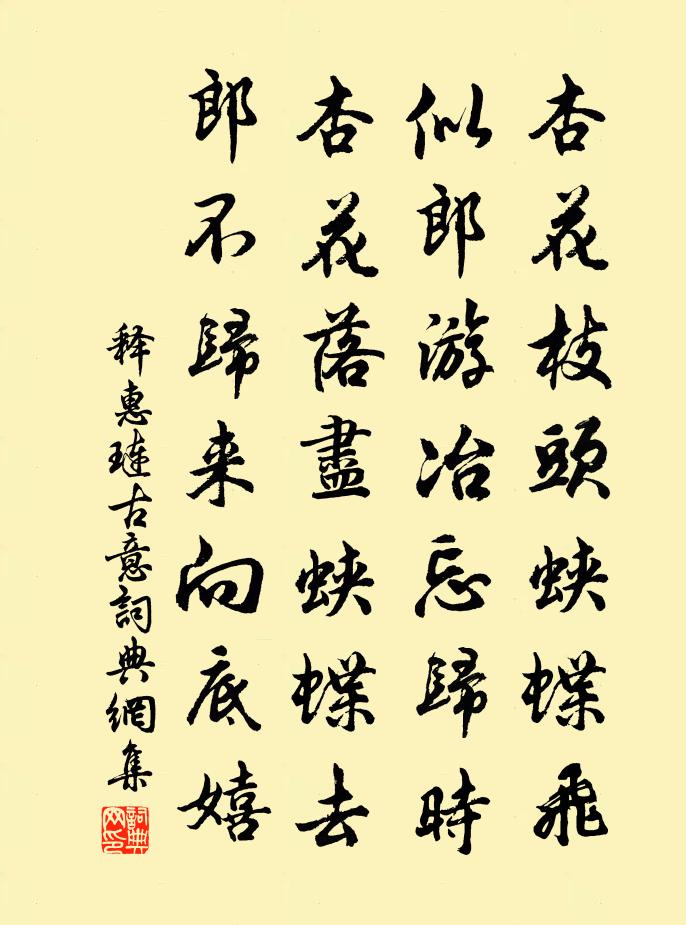 杏花枝頭蛺蝶飛
似郎游冶忘歸時
杏花落盡蛺蝶去
郎不歸来向底嬉
释惠璉古意詞典網集
詞典网印